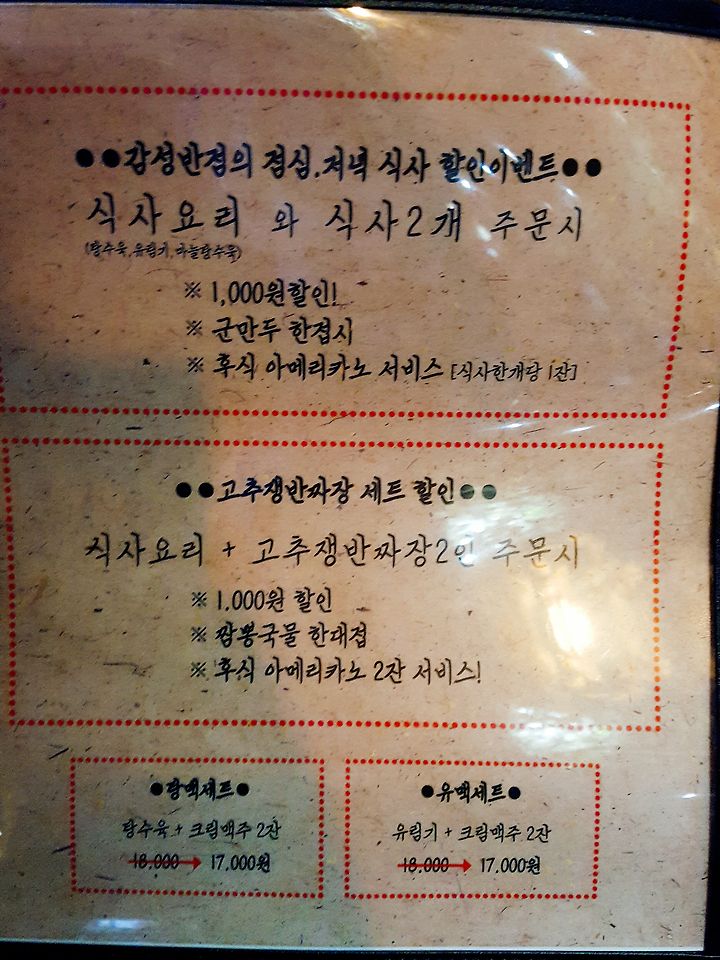 ●●감성반점의 점심.저녁 식사 할인이벤트●●
식사요리 와 식사2개 주문시
(탕수육,유림기,마늘탕수육)
※ 1,000원할인!
※ 군만두 한접시
※ 후식 아메리카노 서비스 [식사한개당 1잔]
●●고추쟁반짜장 세트 할인●●
식사요리 + 고추쟁반짜장2인 주문시
※ 1.000원 할인
※ 짬뽕국물 한대접
※ 후식 아메리카노 2잔 서비스!
●탕맥세트●
탕수육 + 크림맥주 2잔
18,000 → 17,000원
●유맥세트●
유림기 + 크림맥주 2잔
18,000 → 17,000원